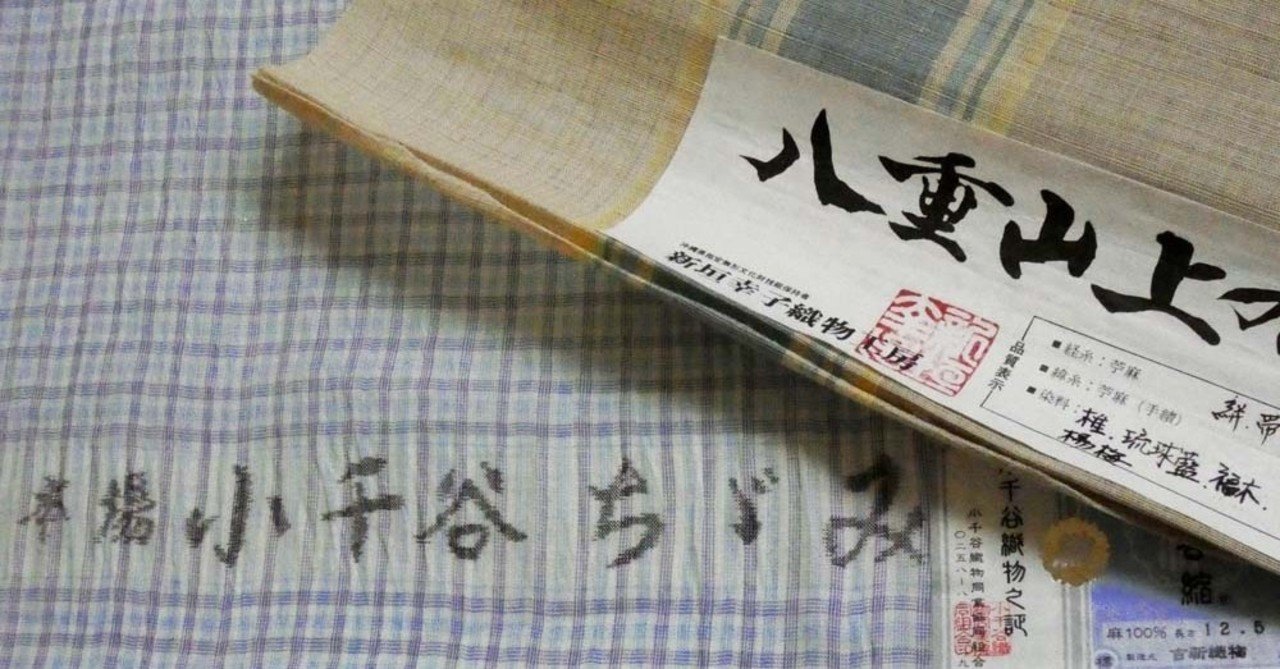 八重山上
沖縄県指定無形文化財技能保持者
新垣幸子織物工房
品質表示
■経糸：苧麻
■緯糸：苧麻（手績）
■染料：椎.琉球藍.福木.
楊梅
絣.帯
本場小千谷ちゞみ
千谷織物之証
小千谷織物同業協同組合
〇二五八
縮
麻100% 長さ 12.5